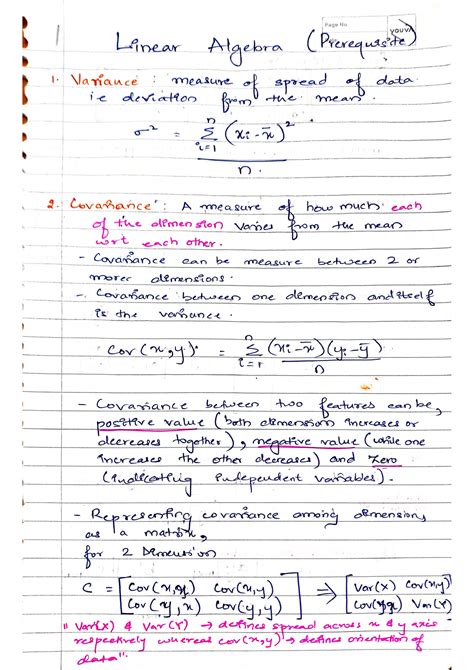 Page No.
YOUVA
1
Linear Algebra (Prerequisite)
1. Variance : measure of spread of data
i.e deviation from the mean.
σ² = Σ_{i=1}^{n} (xi - x̄)² / n.
2. Covariance : A measure of how much each
of the dimension varies from the mean
wrt each other.
- Covariance can be measure between 2 or
morec dimensions.
- Covariance between one dimension and itself
is the variance.
Cov(x,y) = Σ_{i=1}^{n} (xi - x̄)(yi - ȳ) / n
- Covariance between two features can be,
positive value (both dimension increases or
decreases together), negative value (while one
increases the other decreases) and zero
(indicating independent variables).
- Representing covariance among dimensions
as a matrix,
for 2 Dimension
C = [Cov(x,x) Cov(x,y) ⇒ [Var(x) Cov(x,y)
Cov(y,x) Cov(y,y)] Cov(y,x) Var(Y)]
"Var(X) & Var(Y) → defines spread across x & y axis
respectively whereas cov(x,y) → defines orientation of
data".